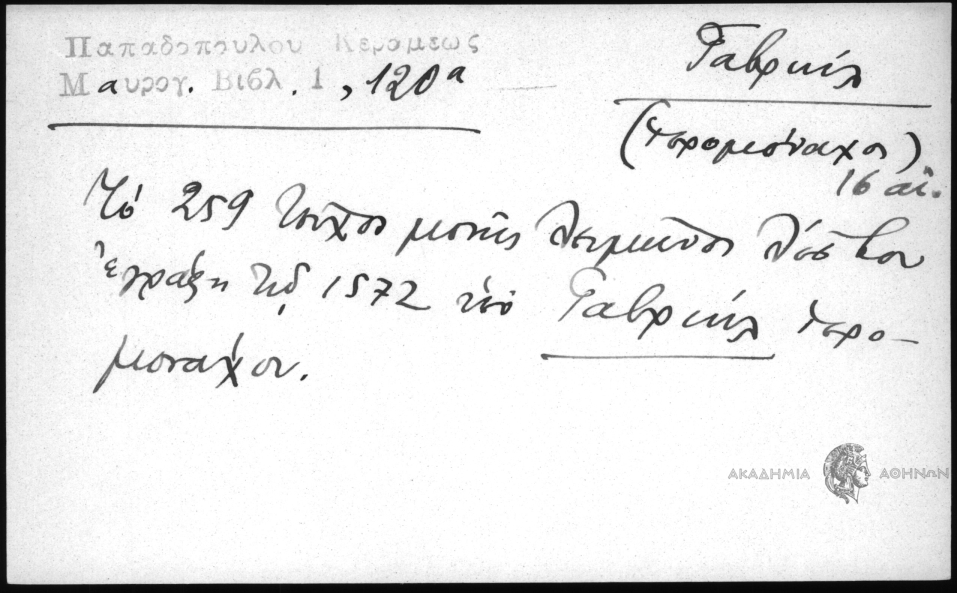 Παπαδοπουλου Κεραμεως
Μαυρογ. Βιβλ. 1, 120α
Γαβριήλ
(ἱερομόναχος)
16 αἰ.
Τό 259 τεῦχος μονῆς Λειμῶνος Λέσβου
ἐγράφη τῷ 1572 ὑπό Γαβριήλ ἱερο-
μονάχου.
ΑΚΑΔΗΜΙΑ ΑΘΗΝΩΝ